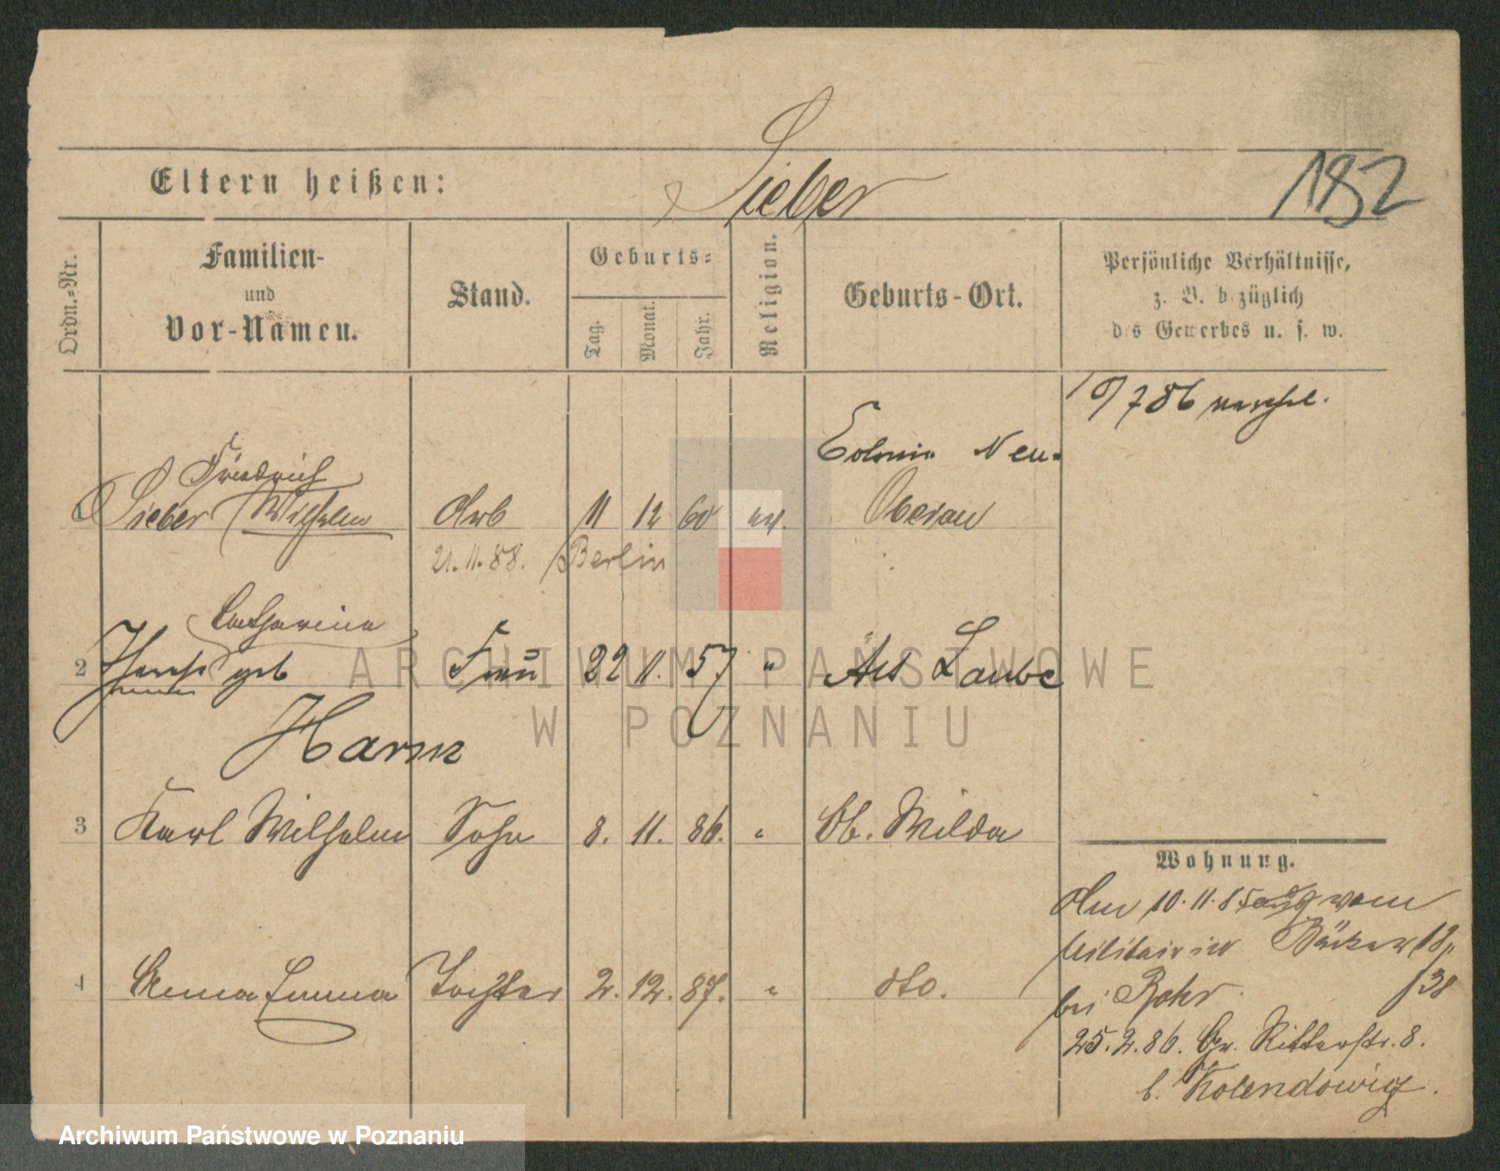 Eltern heißen: Sieber 182
Ordn.-Nr. Familien- und Vor-Namen. Stand. Geburts- Tag. Monat. Jahr. Religion. Geburts-Ort. Persönliche Verhältnisse, z. B. bezüglich des Gewerbes u. s. w.
10/7 86
Friedrich Colonie Neu-
Sieber Wilhelm Arb 11 12 60 ev. Oberau
21.11.88. Berlin
Catharina
2 geb Frau 22 11. 57 " Laube
Harm
3 Karl Wilhelm Sohn 8. 11. 86. " Ob. Wilda
Wohnung.
Am 10.11.85 vom
Militair in Bäckerst 18
4 Anna Emma Tochter 2. 12. 87. " dto.
bei Rohr.
25.2.86. Gr. Ritterstr. 8.
b. Kolendowicz.
ARCHIWUM PAŃSTWOWE
W POZNANIU
Archiwum Państwowe w Poznaniu